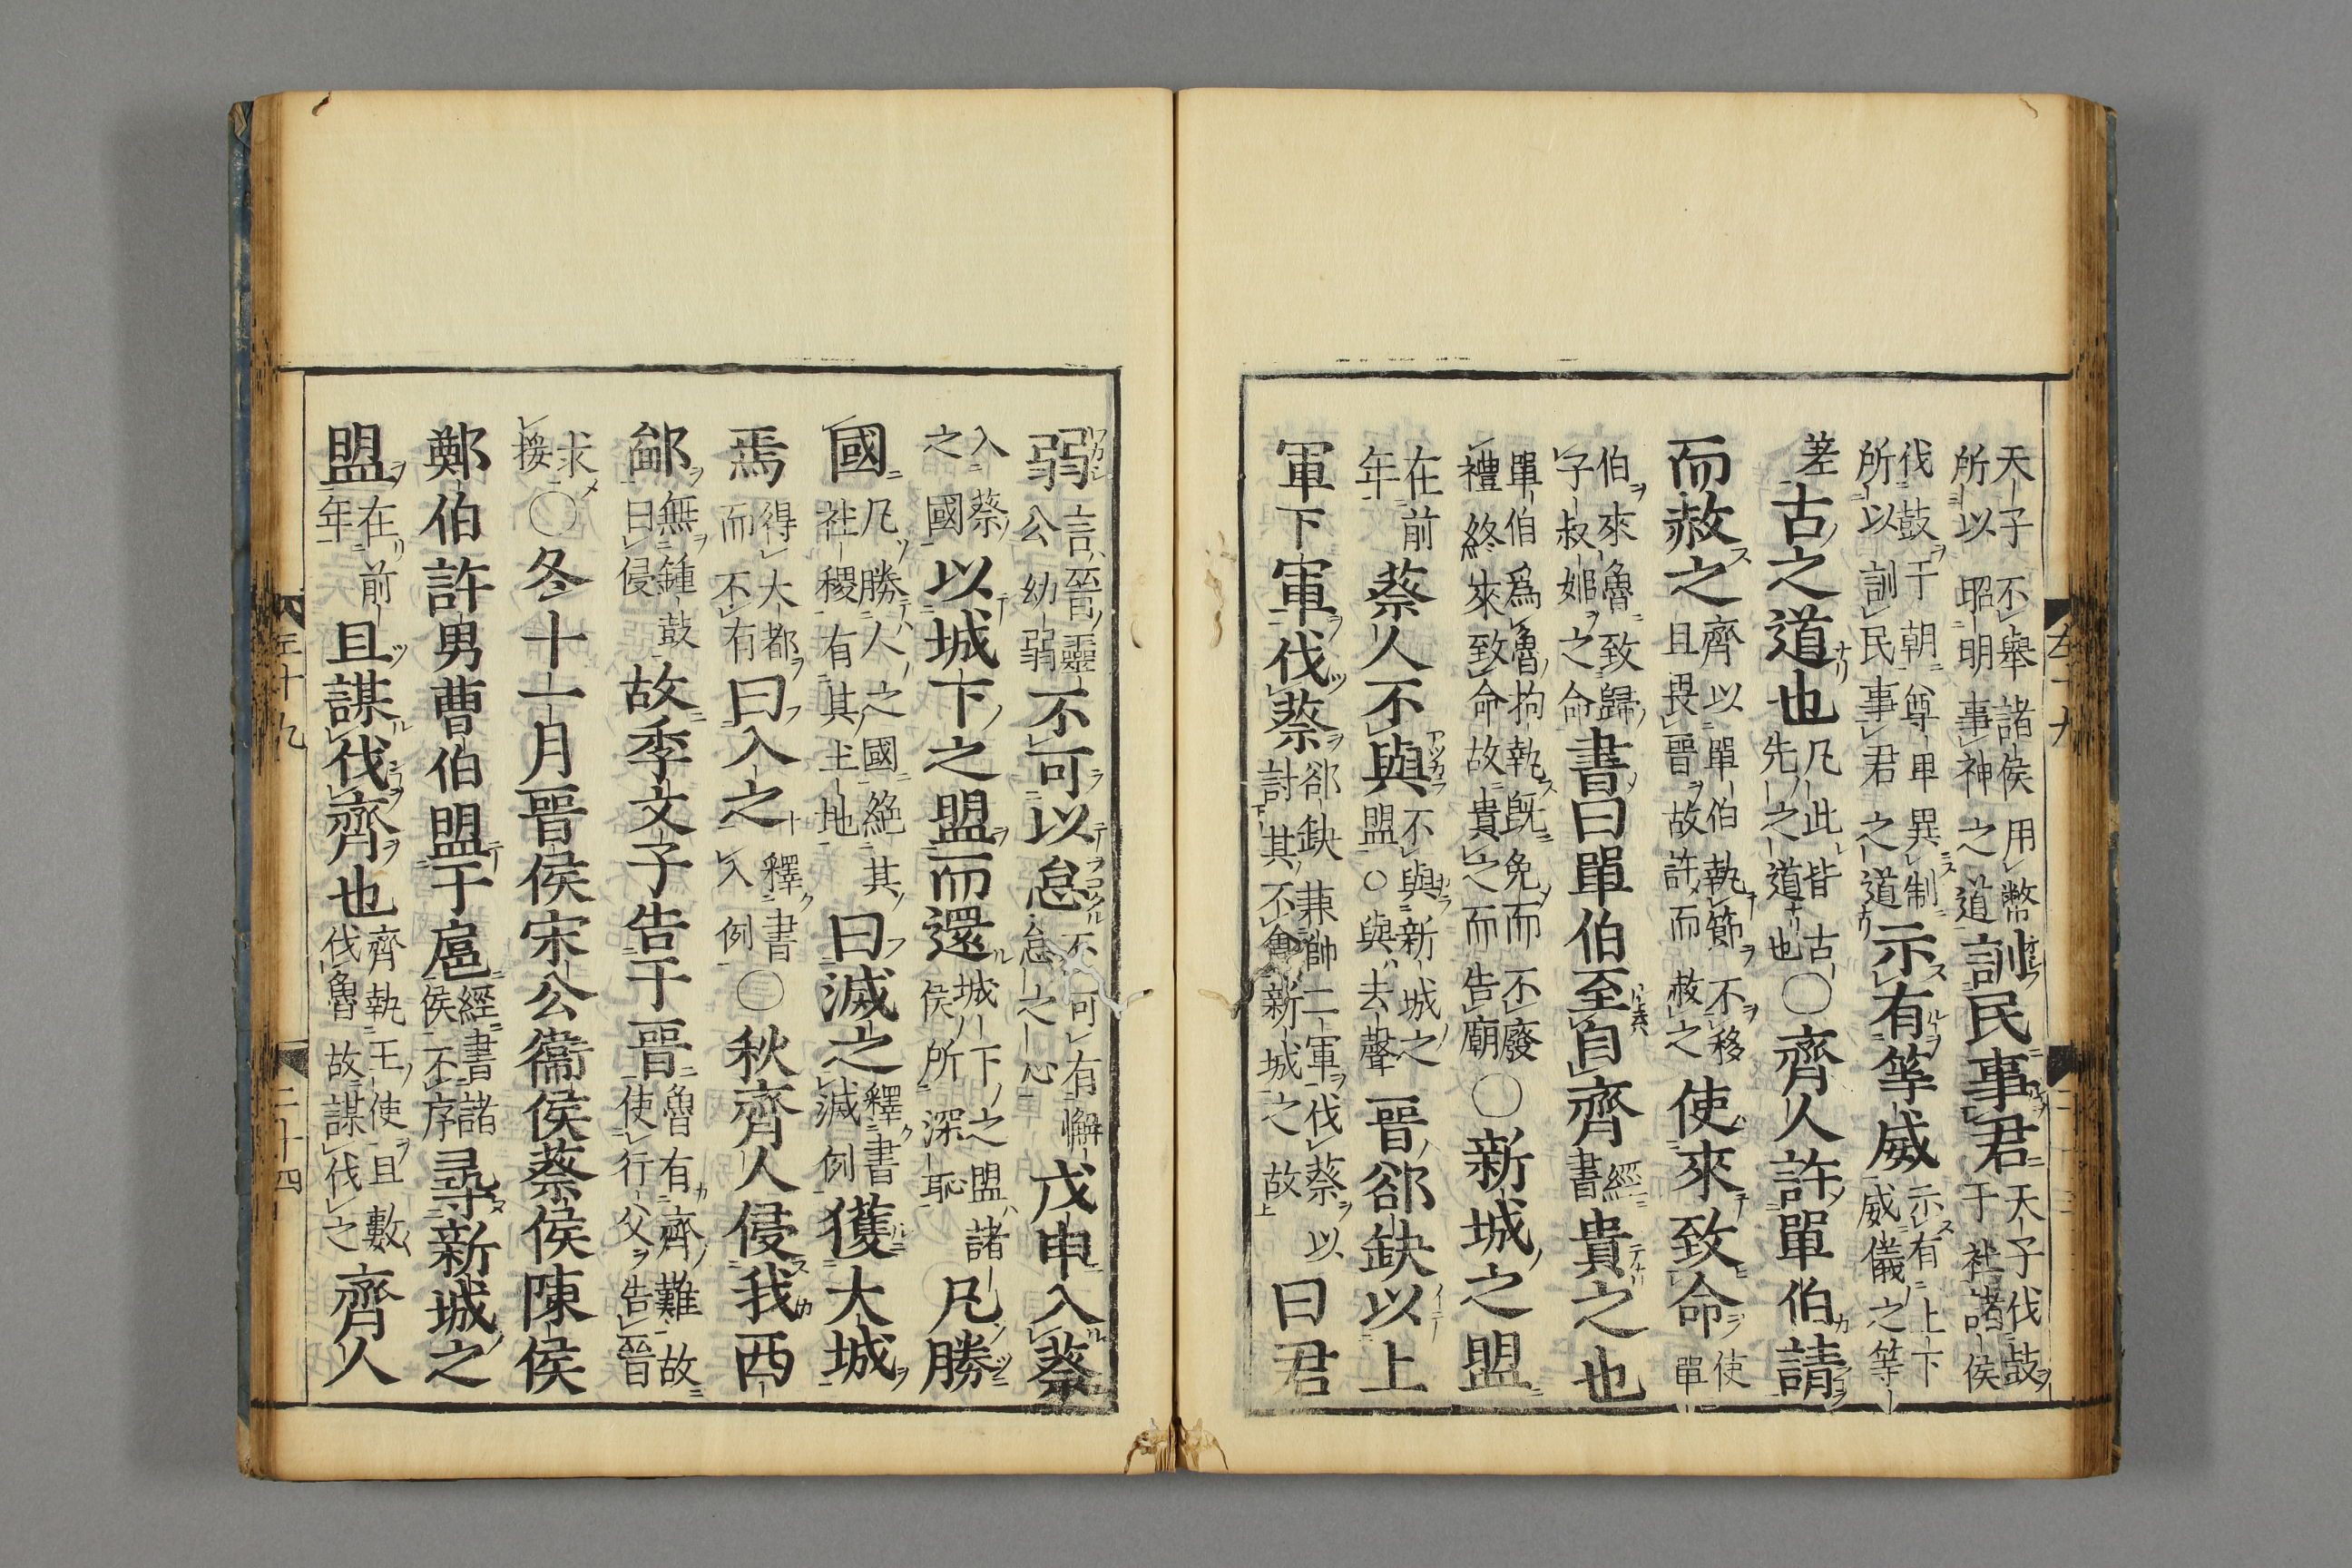 天子不舉諸侯用幣
所以昭明事神之道訓民事君天子伐鼓
于社諸侯
伐鼓于朝尊卑異制
所以訓民事君之道示有等威示有上下
威儀之等
差古之道也凡此皆古
先之道也〇齊人許單伯請
而赦之齊以單伯執節不移
且畏晉故許而赦之使來致命使
單
伯來魯致歸
子叔姬之命書曰單伯至自齊經
書貴之也
單伯爲魯拘執既免而不廢
禮終來致命故貴之而告廟〇新城之盟
在前
年蔡人不與不與新城之
盟〇與去聲晉郤缺以上
軍下軍伐蔡郤缺兼帥二軍伐蔡以
討其不會新城之故曰君
弱言晉靈
公幼弱不可以怠不可有懈
怠之心戊申入蔡
入蔡
之國以城下之盟而還城下之盟諸
侯所深恥凡勝
國凡勝人之國絕其
社稷有其土地曰滅之釋書
滅例獲大城
焉得大都
而不有曰入之釋書
入例〇秋齊人侵我西
鄙無鍾鼓
曰侵故季文子告于晉魯有齊難故
使行父告晉
求
援〇冬十一月晉侯宋公衞侯蔡侯陳侯
鄭伯許男曹伯盟于扈經書諸
侯不序尋新城之
盟在前
年且謀伐齊也齊執王使且數
伐魯故謀伐之齊人
二十四